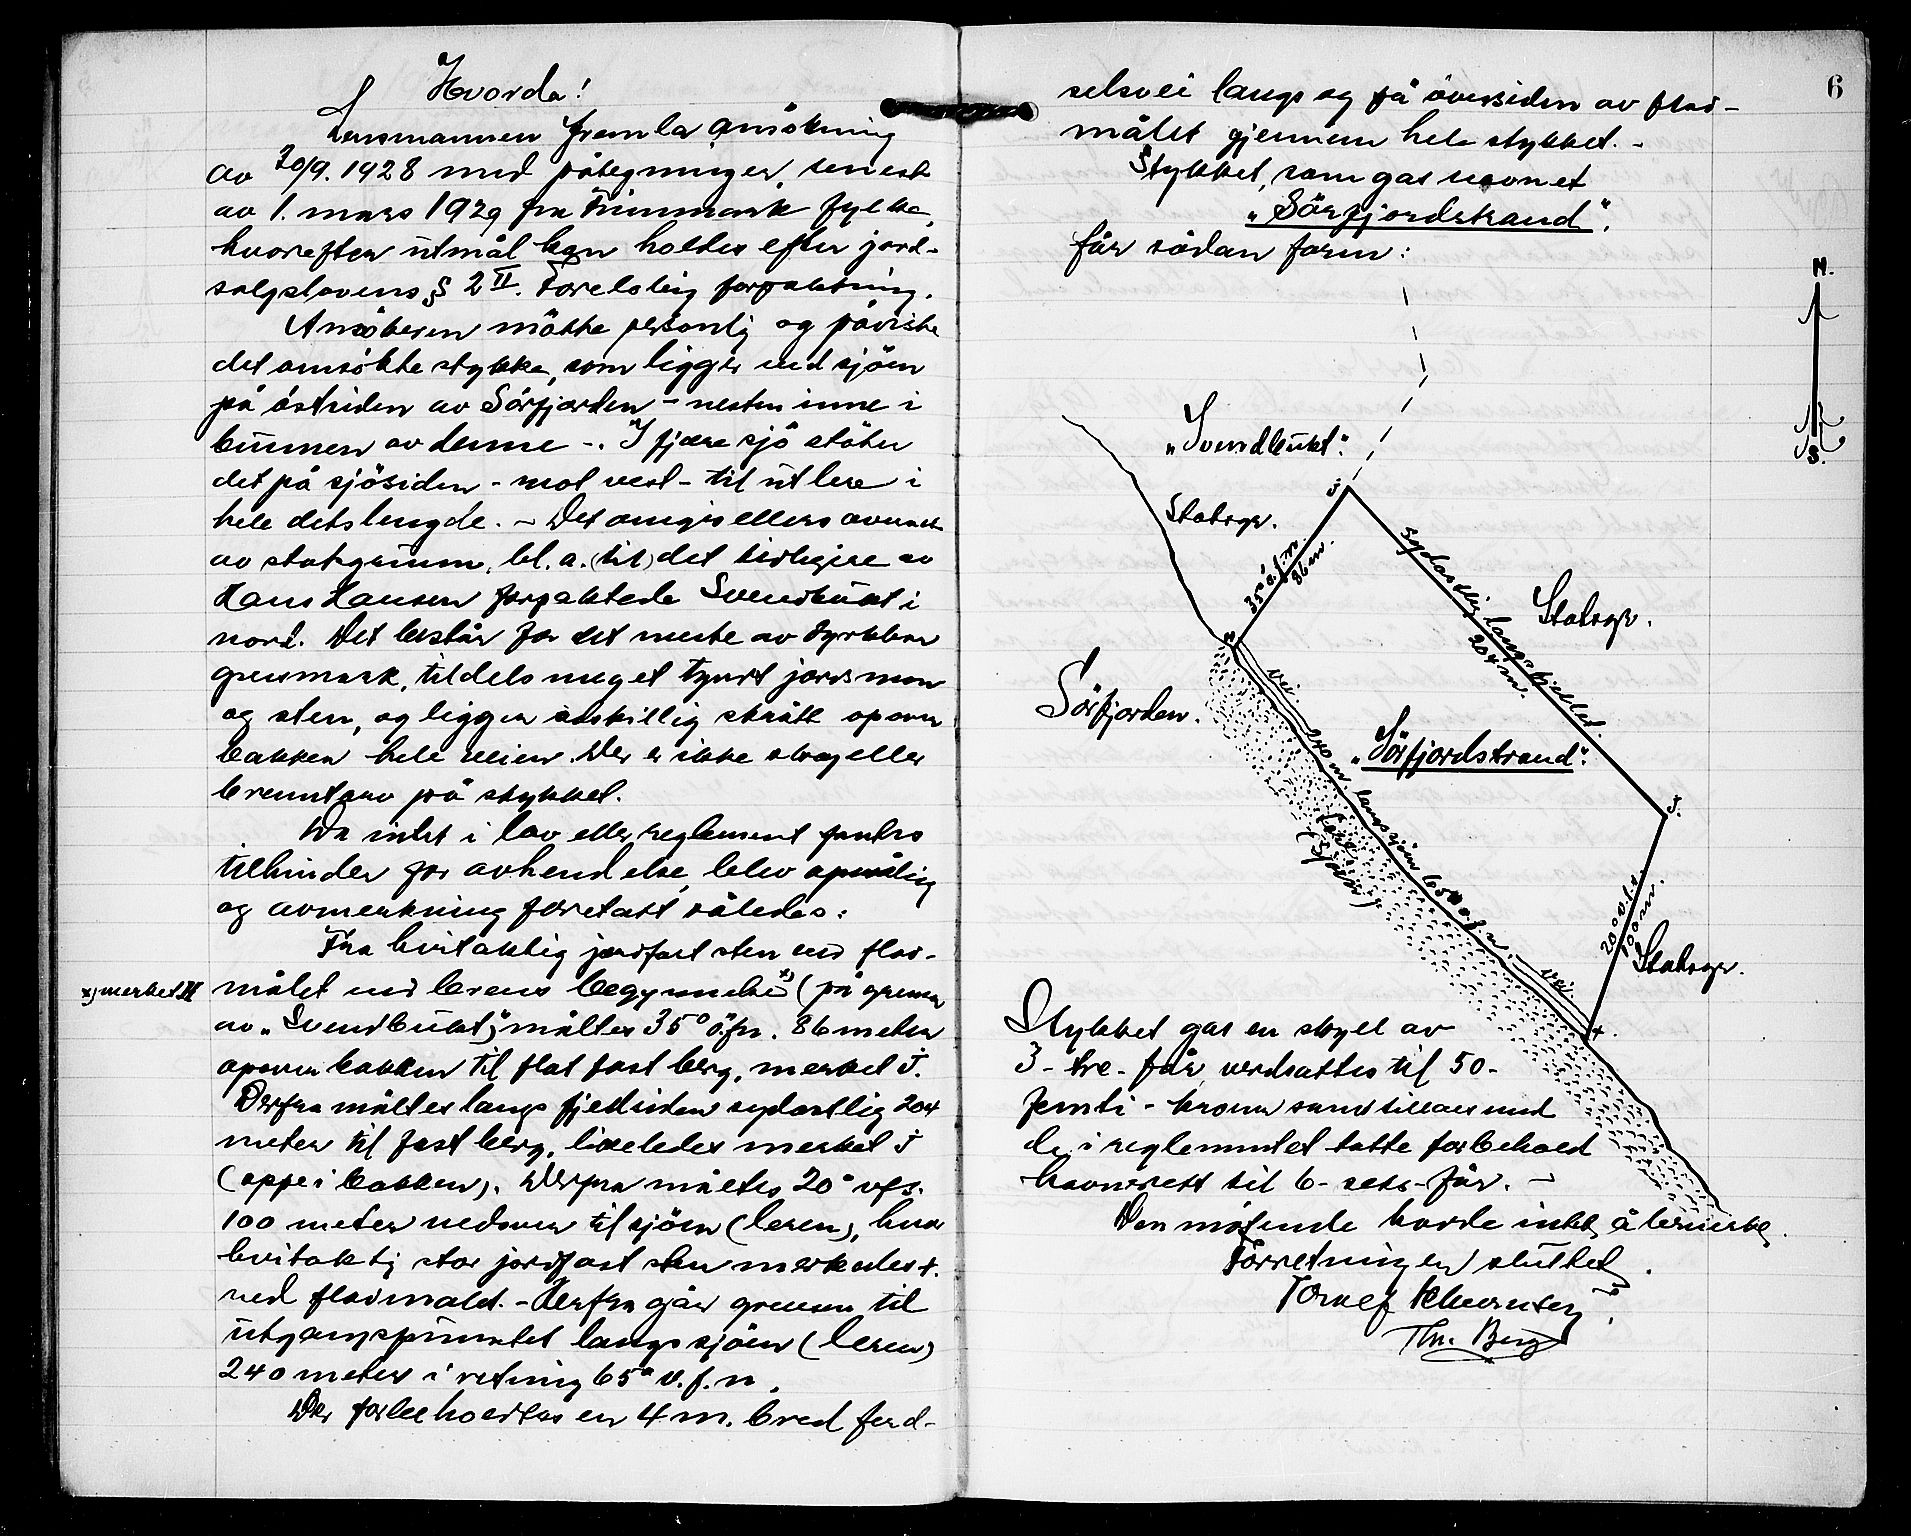 Hvorda!
Lensmannen fremla ansökning
av 20/9. 1928 med påtegninger, senest
av 1. mars 1929 fra Finnmark fylke,
hvorefter utmål kan holdes efter jord-
salgslovens § 2 II. Foreløbig forpaktning.
Ansökeren mötte personlig og påviste
det omsökte stykke, som ligger ved sjöen
på östsiden av Sörfjorden - nesten inne i
bunnen av denne -. I fjære sjö stöter
det på sjösiden - mot vest - til utlere i
hele dets lengde. - Det omgis ellers overalt
av statsgrunn, bl. a. (til) det tidligere av
Hans Hansen forpaktede Svendbukt i
nord. Det består for det meste av dyrkbar
gressmark, tildels meget tyndt jordsmon
og sten, og ligger adskillig skrått opover
bakken hele veien. Der er ikke skog eller
brenntorv på stykket.
Da intet i lov eller reglement fantes
til hinder for avhendelse, blev opmåling
og avmerkning foretatt således:
Fra hvitaktig jordfast sten ved flod-
x) merket N
målet ved lerens begynnelse x) (på grensen
av "Svendbukt") måltes 35° ö.f.n. 86 meter
opover bakken til flat fast berg, merket J.
Derfra måltes langs fjellsiden sydostlig 204
meter til fast berg, likeledes merket J
(oppe i bakken). Derfra måltes 20° v.f.s.
100 meter nedover til sjöen (leren), hvor
hvitaktig stor jordfast sten merkedes +.
ved flodmålet. - Derfra går grensen til
utgangspunktet langs sjöen (leren)
240 meter i retning 65° v.f.n.
Der forbeholdtes en 4 m. bred ferd-
6
selsvei langs og på översiden av flod-
målet gjennem hele stykket. -
Stykket, som gas navnet
"Sörfjordstrand".
får sådan form:
N.
S.
"Svendbukt".
Statsgr.
J
35° ö.f.n.
86 m.
sydostlig langs fjellet.
204 m.
Statsgr.
N
Vei.
Sörfjorden.
"Sörfjordstrand".
240 m. langs sjöen 65° v.f.n.
Lere
(Sjöen)
J.
20° v.f.s.
100 m.
Statsgr.
Vei.
+.
Stykket gas en skyld av
3 - tre - öre, verdsattes til 50 -
femti - kroner samt tillaes med
de i reglementet tatte forbehold
havnerett til 6 - seks - får. -
Den mötende hadde intet å bemerke.
Forretningen sluttet.
Thr. Berg